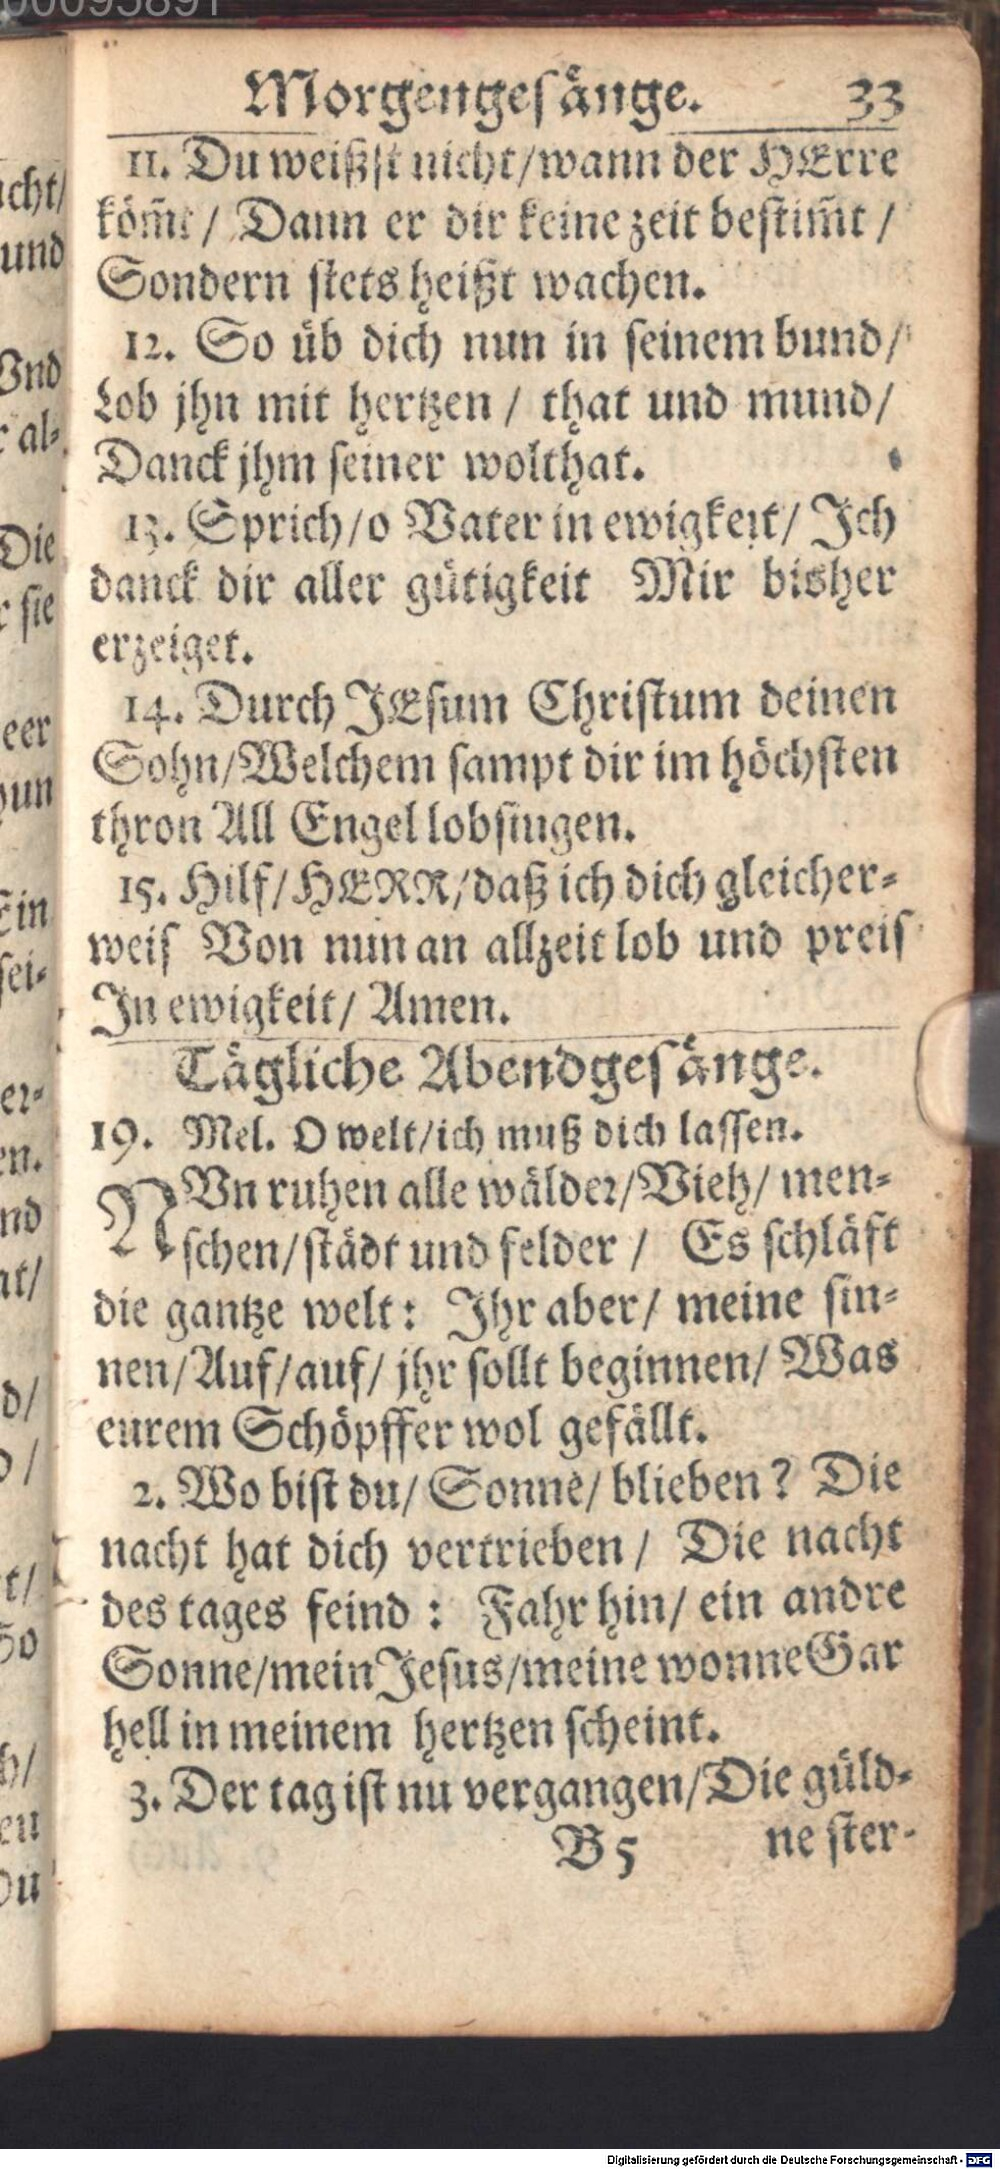 Morgengesänge. 33
11. Du weißst nicht/wann der HErre
köm̃t/ Dann er dir keine zeit bestim̃t/
Sondern stets heißt wachen.
12. So üb dich nun in seinem bund/
Lob jhn mit hertzen/ that und mund/
Danck jhm seiner wolthat.
13. Sprich/o Vater in ewigkeit/ Ich
danck dir aller gütigkeit Mir bisher
erzeiget.
14. Durch JEsum Christum deinen
Sohn/Welchem sampt dir im höchsten
thron All Engel lobsingen.
15. Hilf/HERR/daß ich dich gleicher-
weis Von nun an allzeit lob und preis
In ewigkeit/ Amen.
Tägliche Abendgesänge.
19. Mel. O welt/ich muß dich lassen.
NVn ruhen alle wälder/Vieh/ men-
schen/städt und felder/ Es schläft
die gantze welt: Ihr aber/ meine sin-
nen/Auf/auf/ jhr sollt beginnen/ Was
eurem Schöpffer wol gefällt.
2. Wo bist du/ Sonne/ blieben? Die
nacht hat dich vertrieben/ Die nacht
des tages feind: Fahr hin/ ein andre
Sonne/mein Jesus/meine wonne Gar
hell in meinem hertzen scheint.
3. Der tag ist nu vergangen/Die güld-
B5 ne ster-
Digitalisierung gefördert durch die Deutsche Forschungsgemeinschaft - DFG